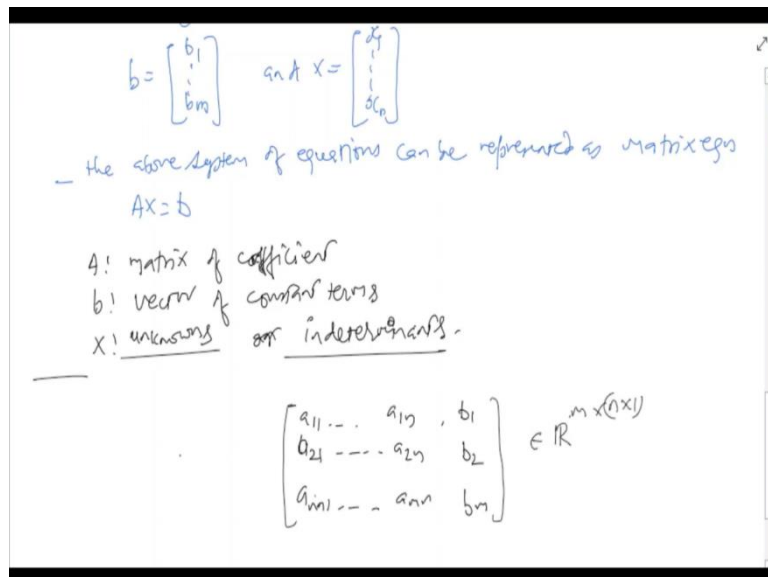 b = [b1 ⋮ bm] and X = [x1 ⋮ xn]
— the above system of equations can be represented as matrix eqns
AX = b
A: matrix of coefficient
b: vector of constant terms
X: unknowns or indeterminants.
[a11 ... a1n , b1
a21 ---- a2n b2
am1 --- amn bm] ∈ ℝ^m×(n×1)